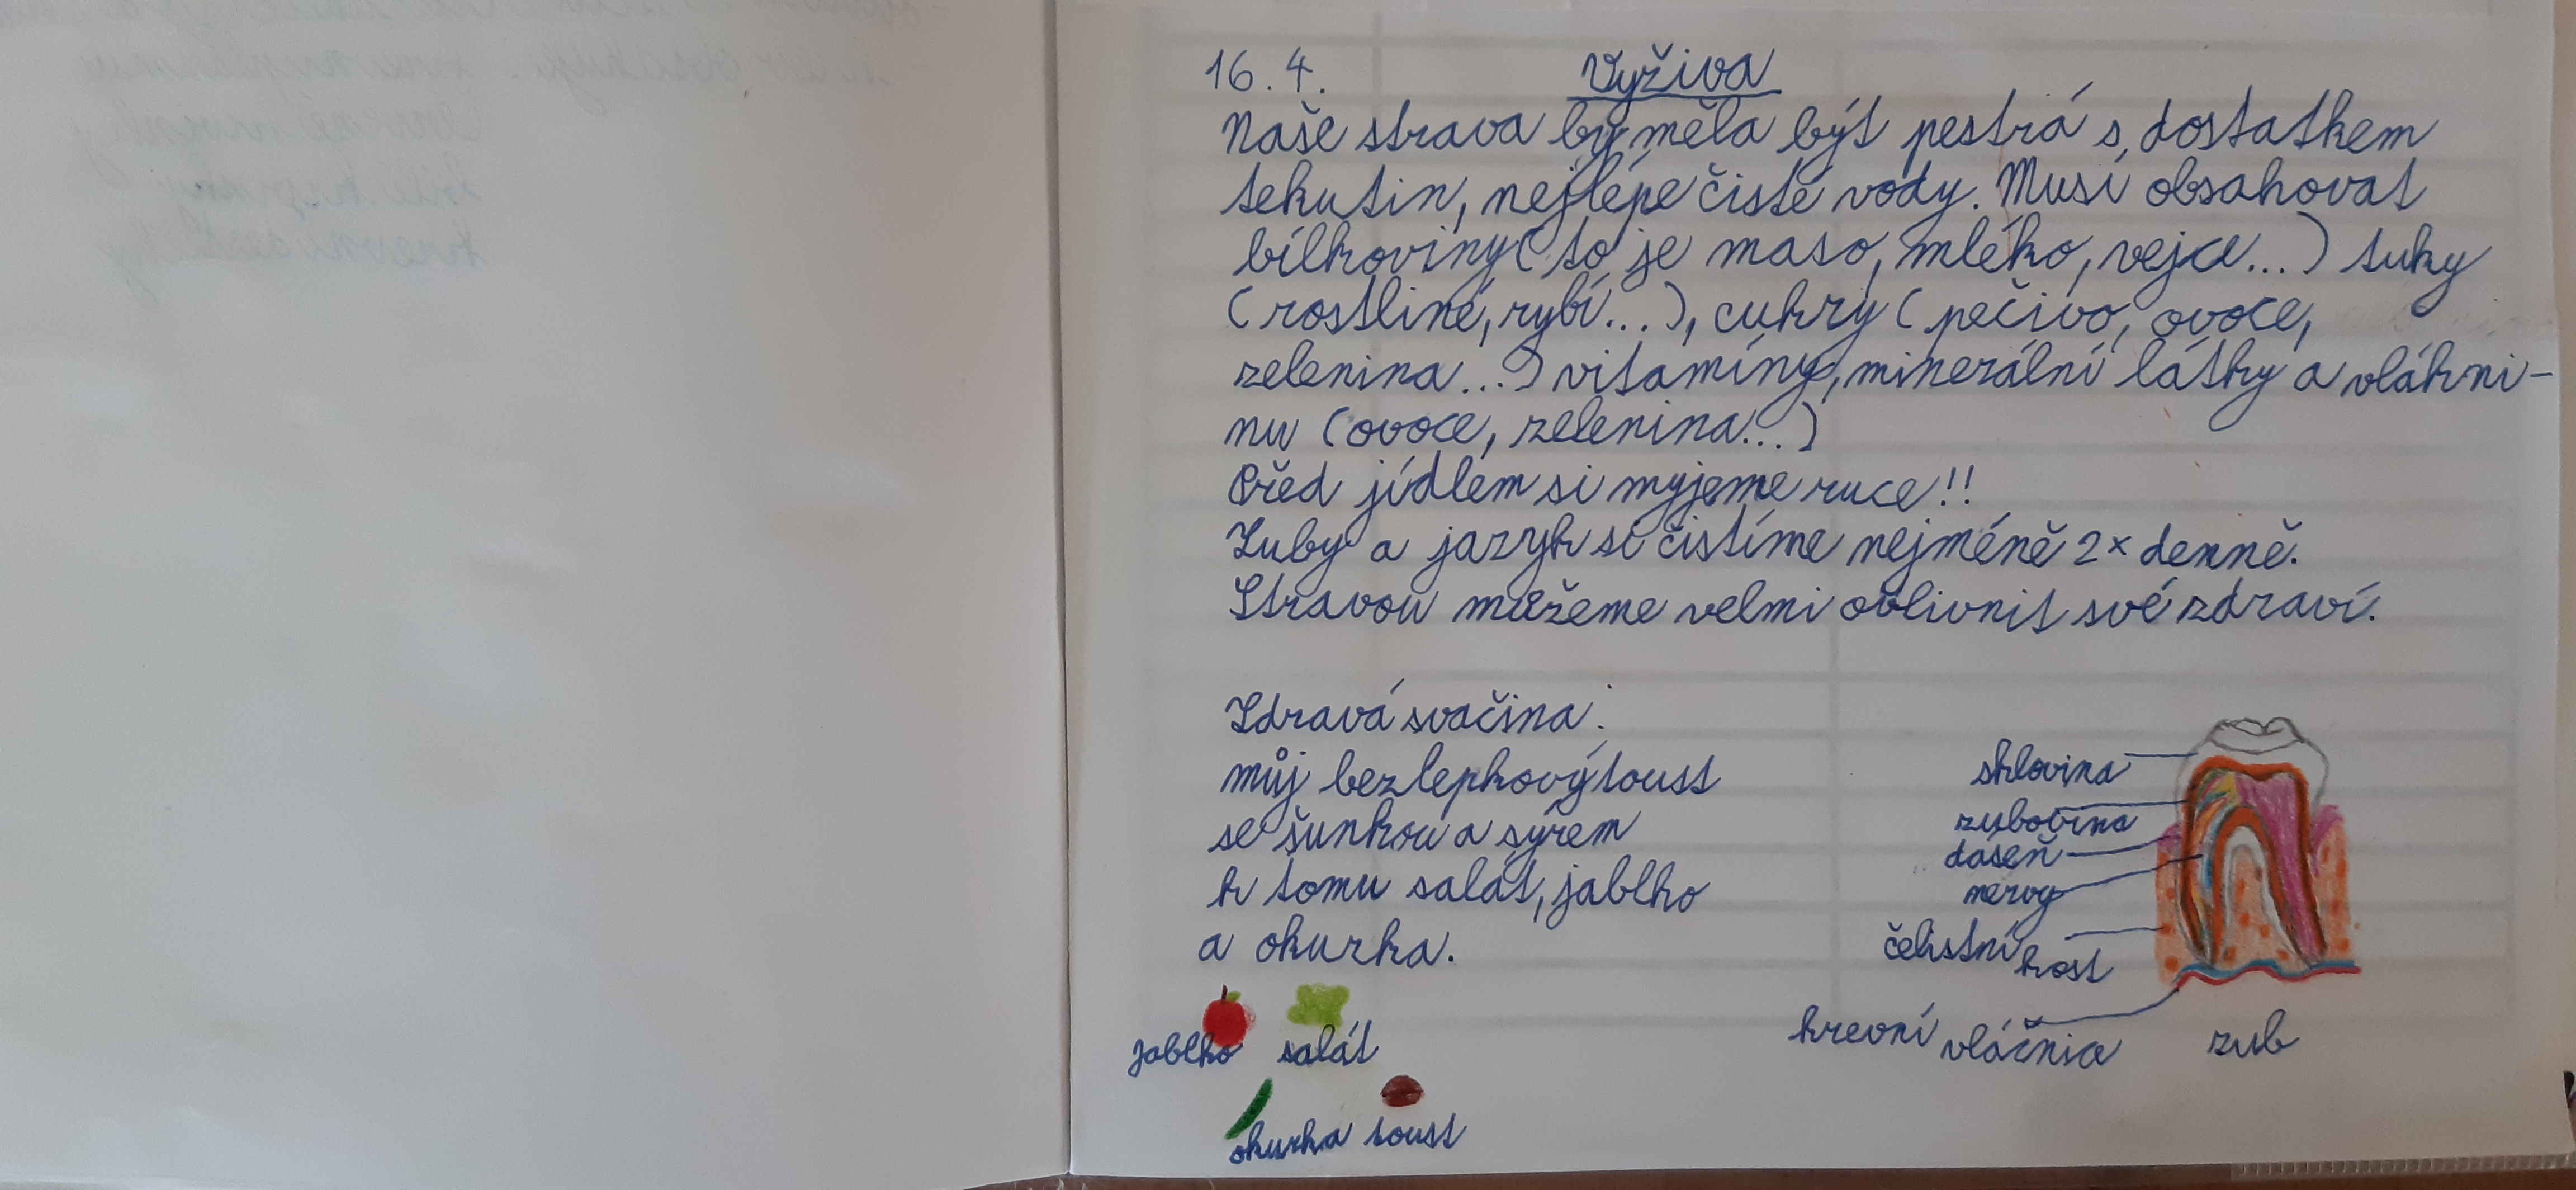 16.4. Výživa
Naše strava by měla být pestrá s dostatkem
tekutin, nejlépe čisté vody. Musí obsahovat
bílkoviny (to je maso, mléko, vejce...) tuky
(rostliné, rybí...), cukry (pečivo, ovoce,
zelenina...) vitamíny, minerální látky a vlákni-
nu (ovoce, zelenina...)
Před jídlem si myjeme ruce!!
Zuby a jazyk si čistíme nejméně 2x denně.
Stravou můžeme velmi ovlivnit své zdraví.
Zdravá svačina:
můj bezlepkový toust
se šunkou a sýrem
k tomu salát, jablko
a okurka.
jablko salát
okurka toust
sklovina
zubovina
dáseň
nervy
čelistní kost
krevní vláčnice
zub